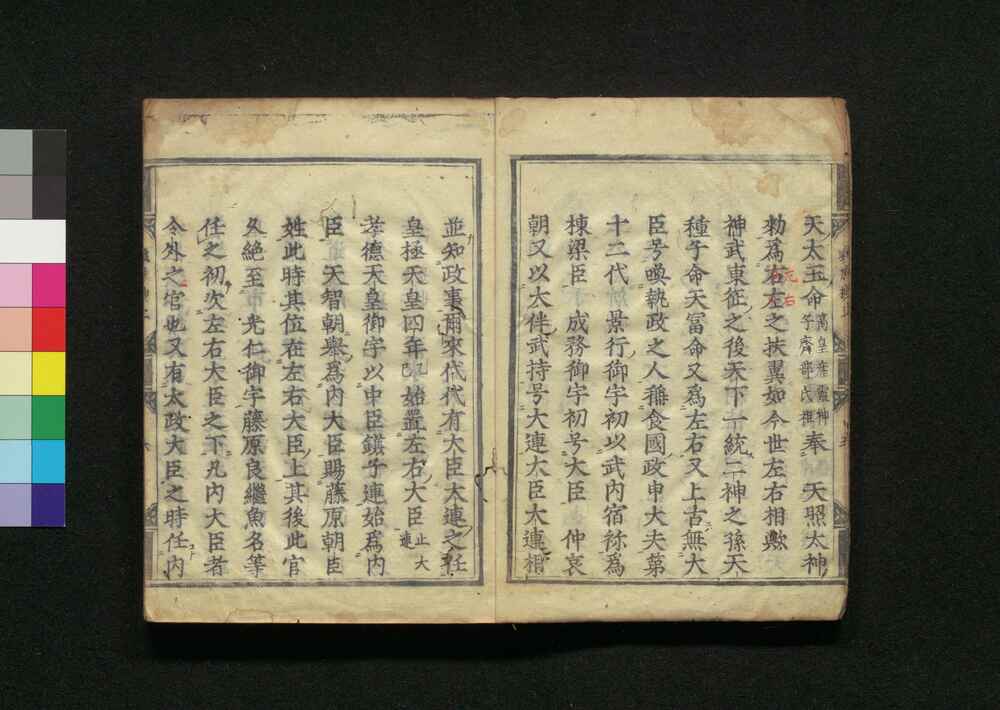 天太玉命高皇産靈神子齋部氏祖奉　天照太神
勅爲右左之扶翼如今世左右相歟
元右
神武東征之後天下一統二神之孫天
種子命天冨命又爲左右又上古無大
臣号喚執政之人稱食國政申大夫第
十二代景行御宇初以武内宿祢爲
棟梁臣　成務御宇初号大臣　仲哀
朝又以大伴武持号大連大臣大連相
並知政事爾來代代有大臣大連之任
皇極天皇四年乙巳始置左右大臣止大連
孝德天皇御宇以中臣鎮子連始爲内
臣　天智朝擧爲内大臣賜藤原朝臣
姓此時其位在左右大臣上其後此官
久絶至　光仁御宇藤原良繼魚名等
任之初次左右大臣之下凡内大臣者
令外之官也又有太政大臣之時任内